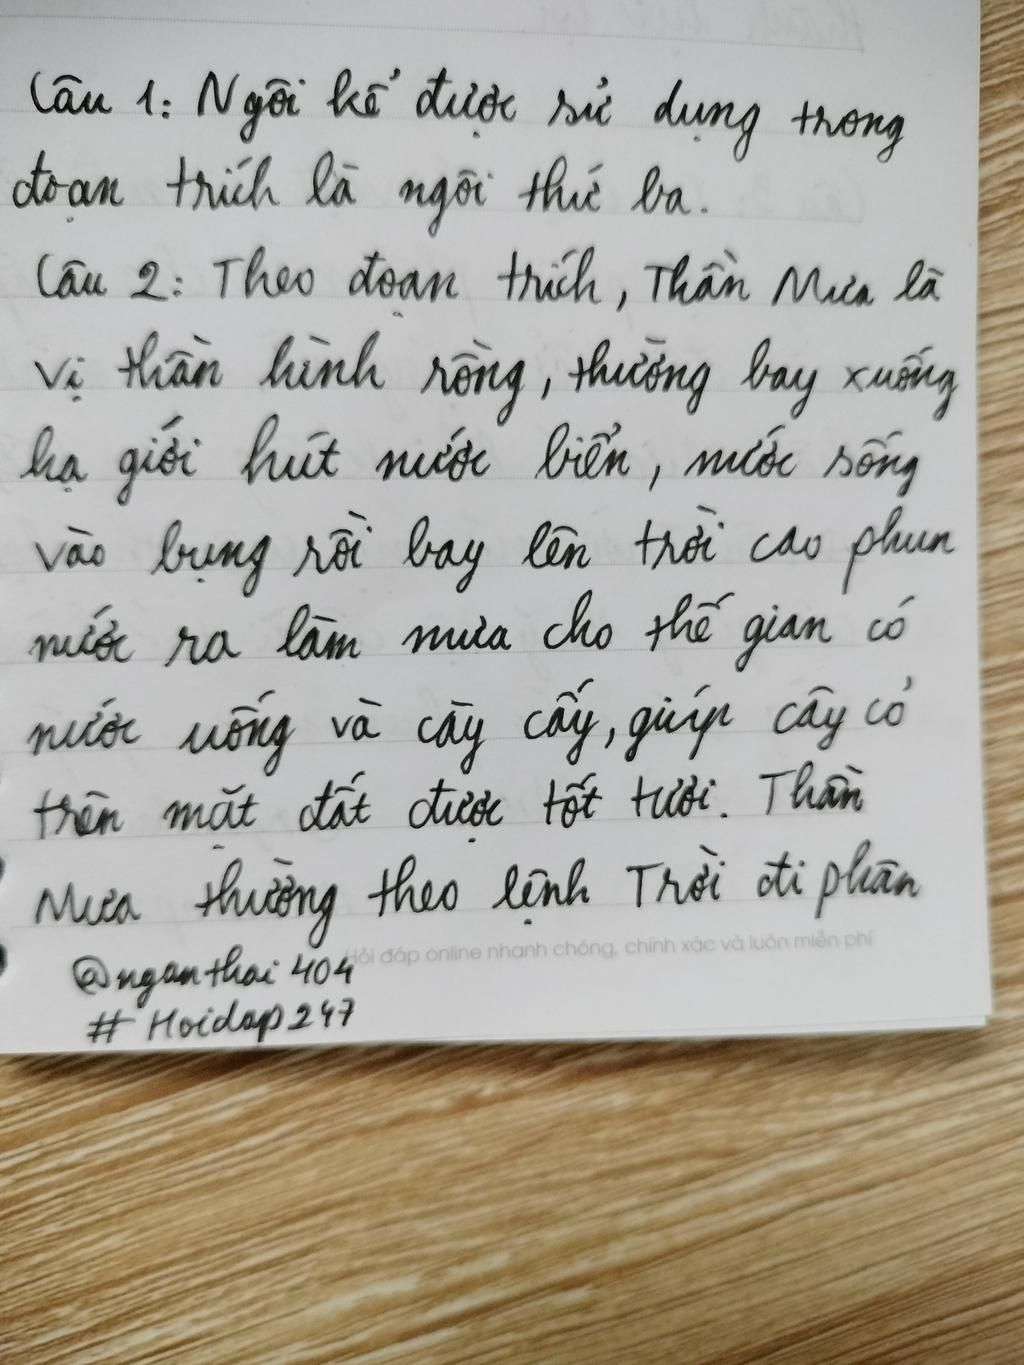 Câu 1: Ngôi kể được sử dụng trong
đoạn trích là ngôi thứ ba.
Câu 2: Theo đoạn trích, Thần Mưa là
vị thần hình rồng, thường bay xuống
hạ giới hút nước biển, nước sông
vào bụng rồi bay lên trời cao phun
nước ra làm mưa cho thế gian có
nước uống và cày cấy, giúp cây cỏ
trên mặt đất được tốt tươi. Thần
Mưa thường theo lệnh Trời đi phân
Hỏi đáp online nhanh chóng, chính xác và luôn miễn phí
@nganthai404
#Hoidap247